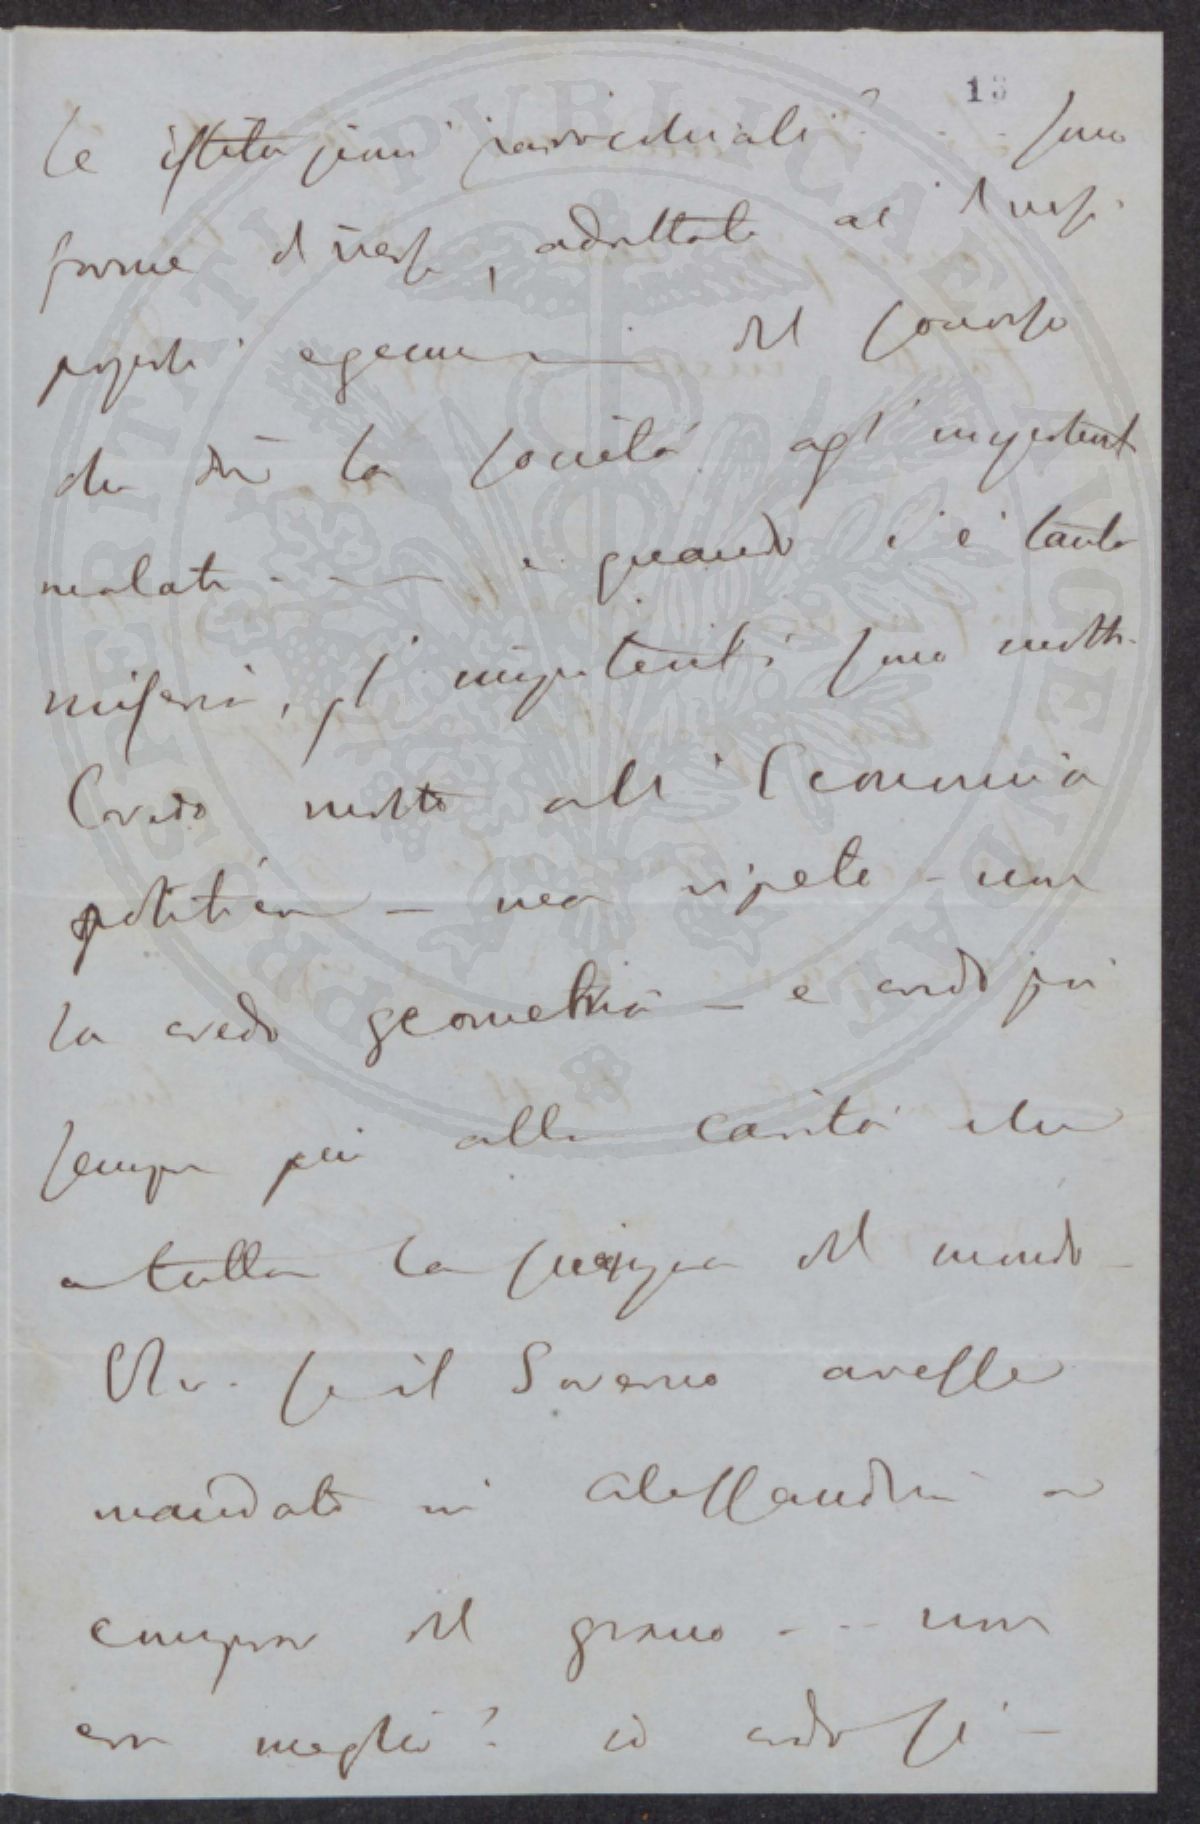 13
le istituzioni parrocchiali? ... sono
forme diverse, adattate ai diversi
del soccorso
che dà la società agl'impotenti
malati — e quando c'è tanta
miseria, gl'impotenti sono molti.
Credo molto all'Economia
politica — ma ripeto — non
la credo geometria — e credo poi
sempre più alla carità che
a tutta la scienza del mondo —
Oh. se il Governo avesse
mandato in Alessandria a
comprar del grano - - - non
era meglio? io credo sì —
PROSPERITATI PVBLICAE AVGENDAE